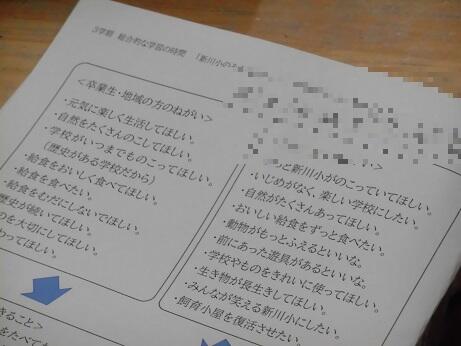 3学期 総合的な学習の時間 「新川小の
<卒業生・地域の方のねがい>
・元気に楽しく生活してほしい。
・自然をたくさんのこしてほしい。
・学校がいつまでものこってほしい。
(歴史がある学校だから)
・給食をおいしく食べてほしい。
・給食を食べたい。
・給食をむだにしないでほしい。
歴史が続いてほしい。
のを大切にしてほしい。
わってほしい。
と新川小がのこっていてほしい。
・いじめがなく、楽しい学校にしたい。
・自然がたくさんあってほしい。
・おいしい給食をずっと食べたい。
・動物がもっとふえるといいな。
・前にあった遊具があるといいな。
・学校やものをきれいに使ってほしい。
・生き物が長生きしてほしい。
・みんなが笑える新川小にしたい。
・飼育小屋を復活させたい。
きること>
をたべても